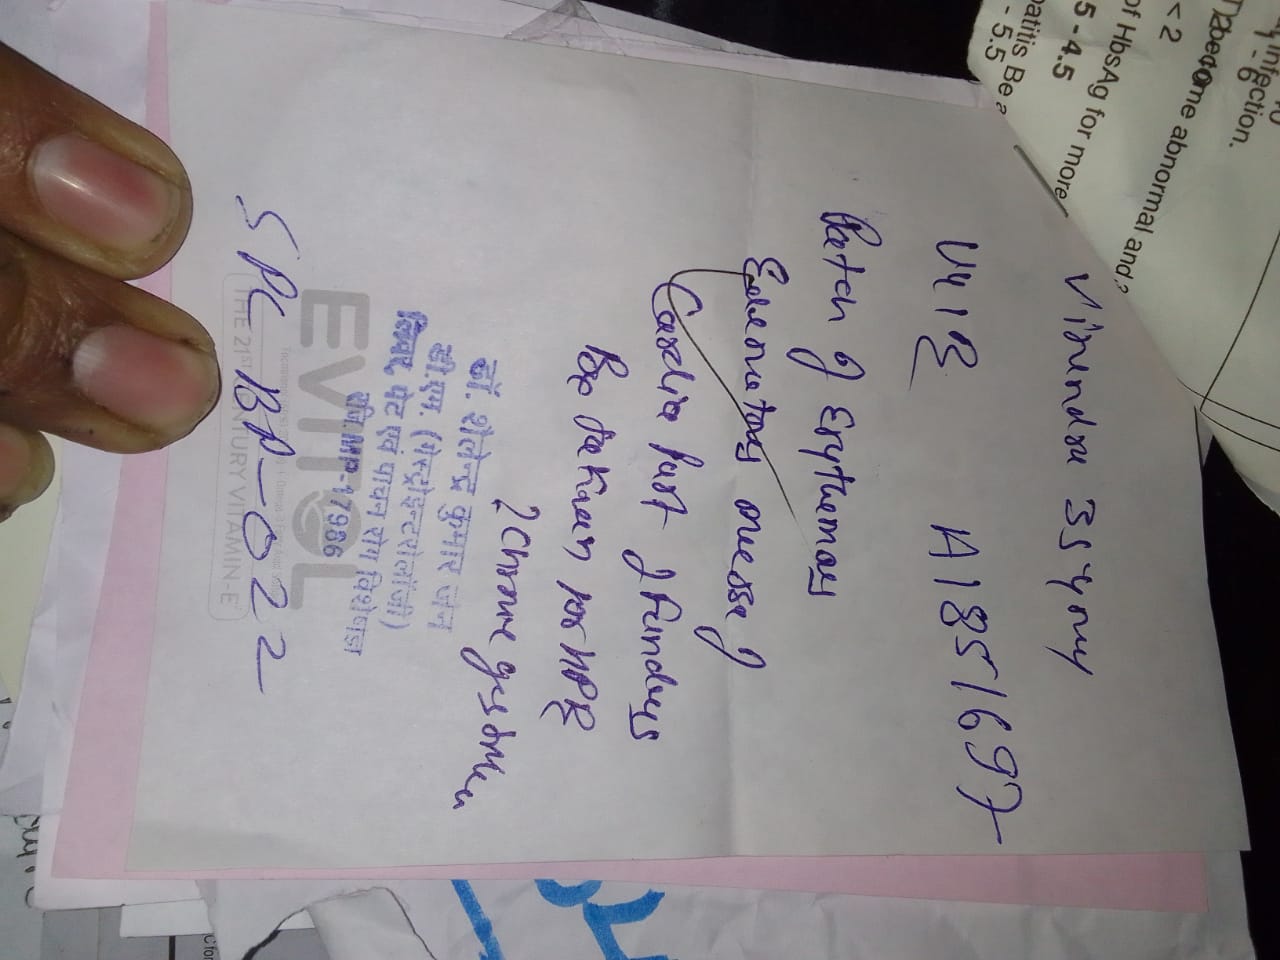 Virendra 35 y/m
UGIE A1851697
Patch of Erythematous
Edematous mucosa of
Cardia part of fundus
Bx taken for HPE
? Chronic gastritis
डॉ. शैलेन्द्र कुमार जैन
डी.एम. (गैस्ट्रोइन्टरोलॉजी)
लिवर पेट एवं पाचन रोग विशेषज्ञ
रजि.MP-17986
EVITOL
THE 21ST CENTURY VITAMIN-E
022
infection.
become abnormal and
< 2
of HbsAg for more
5 - 4.5
- 5.5